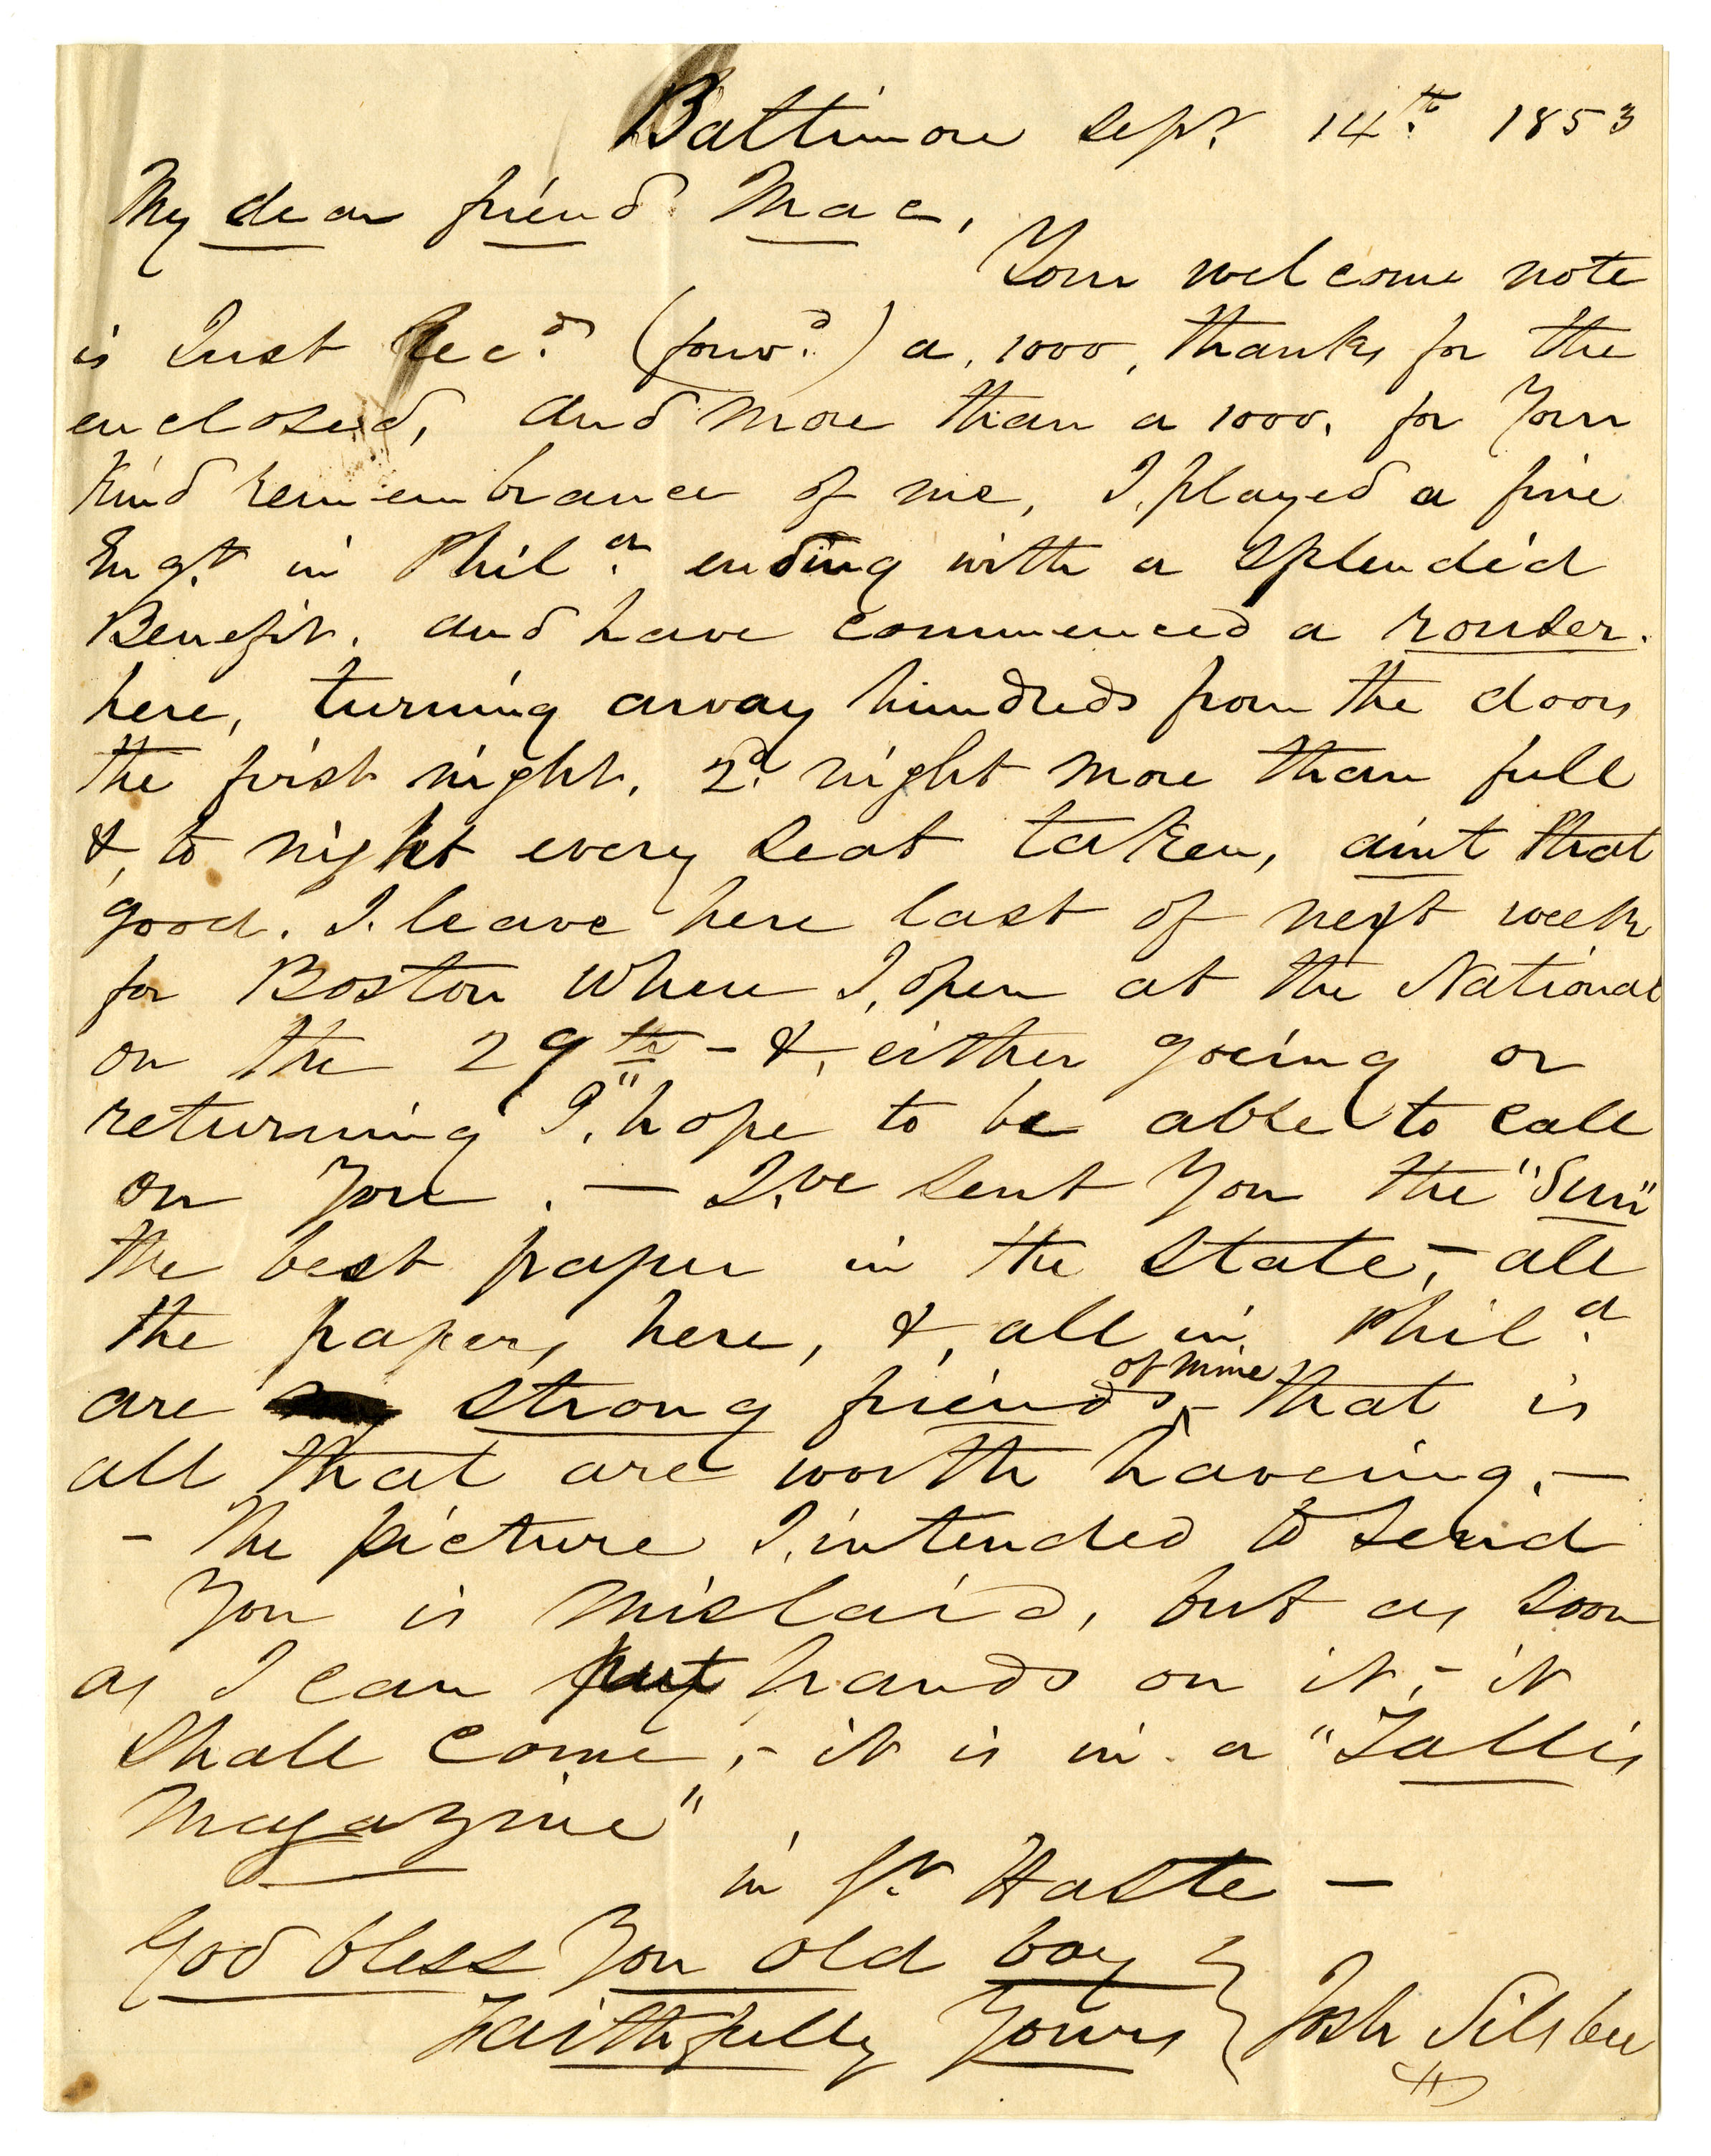 Baltimore Sept. 14th. 1853
My dear friend Mac,
Your welcome note
is Just Recd. (forwd.) a, 1000, thanks for the
enclosed, and more than a 1000, for Your
Kind remembrance of me, I, played a fine
Engt. in Phila. ending with a splendid
Benefit. and have commenced a rouser.
here, turning away hundreds from the doors
the first night. 2d. night more than full
&, to night every seat taken, aint that
good. I. leave here last of next week
for Boston where I, open at the National
on the 29th - &, either going or
returning I, hope to be able to call
on You. — I,ve sent You the "Sun"
the best paper in the State, - all
the papers here, &, all in Phila.
are strong friends of mine - that is
all that are worth haveing. —
- The picture I, intended to send
You is mislaid, but as soon
as I can put hands on it, - it
shall come, - it is in a "Tallis
Magazine"
in Gt. Haste —
God bless You old boy
Faithfully Yours } Josh Silsbee